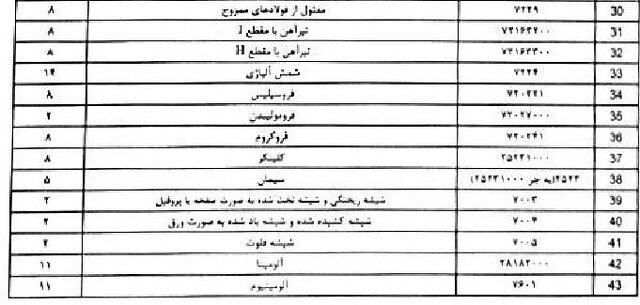 30 ۷۲۲۹ مفتول از فولادهای ممزوج ۸
31 ۷۳۱۶۳۲۰۰ تیرآهن با مقطع I ۸
32 ۷۳۱۶۳۳۰۰ تیرآهن با مقطع H ۸
33 ۷۲۲۴ شمش آلیاژی ۱۴
34 ۷۲۰۲۲۱ فروسیلیس ۸
35 ۷۲۰۲۷۰۰۰ فرومولیبدن ۲
36 ۷۲۰۲۴۱ فروکروم ۸
37 ۲۵۲۳۱۰۰۰ کلینکر ۸
38 ۲۵۲۳(به جز ۲۵۲۳۱۰۰۰) سیمان ۵
39 ۷۰۰۳ شیشه ریختگی و شیشه تخت شده به صورت صفحه یا پروفیل ۲
40 ۷۰۰۴ شیشه کشیده شده و شیشه باد شده به صورت ورق ۲
41 ۷۰۰۵ شیشه فلوت ۲
42 ۲۸۱۸۲۰۰۰ آلومینا ۱۱
43 ۷۶۰۱ آلومینیوم ۱۱